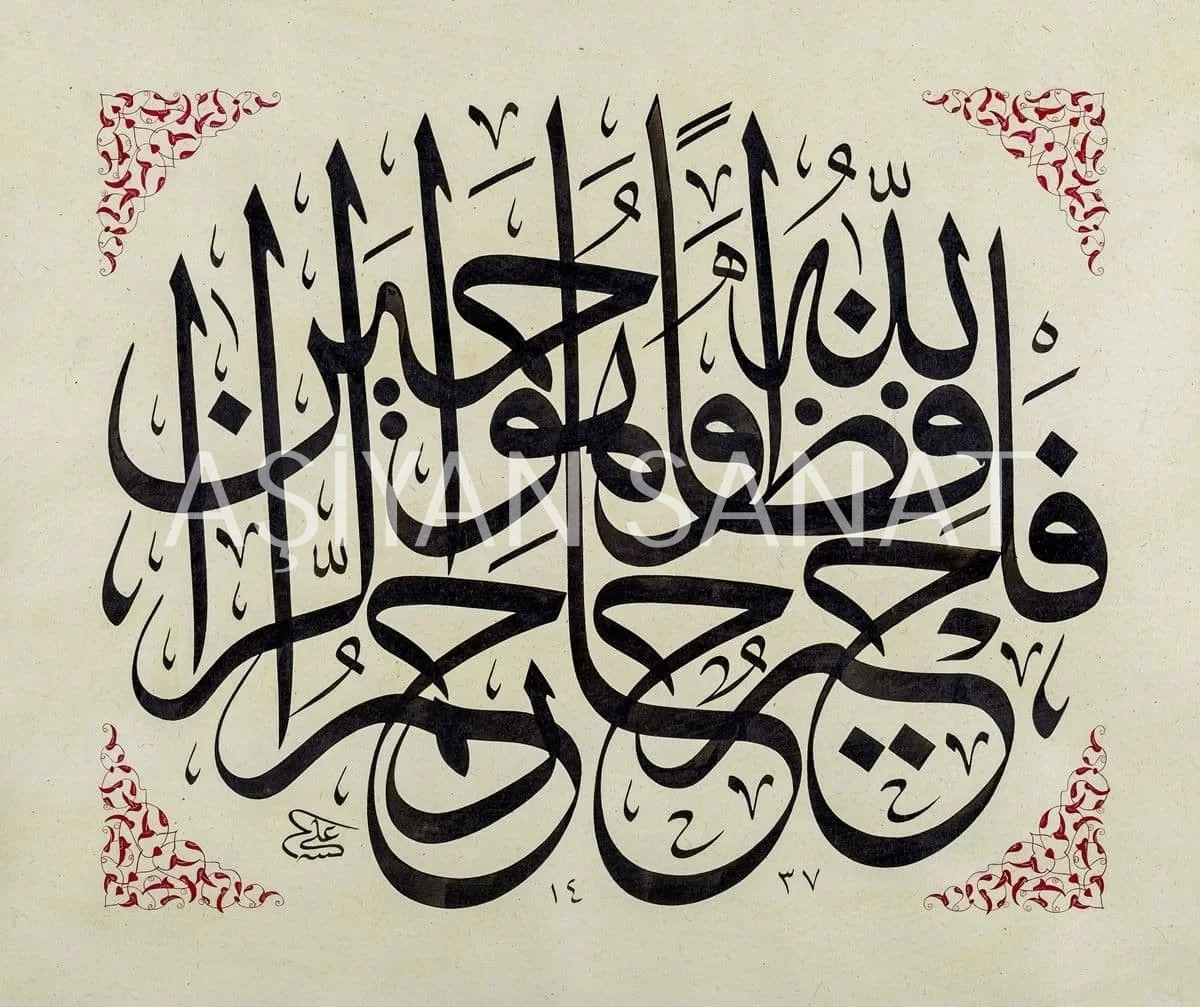 فَاللّٰهُ خَيْرٌ حَافِظًا وَهُوَ أَرْحَمُ الرَّاحِمِينَ
AŞİYAN SANAT
١٤٣٧